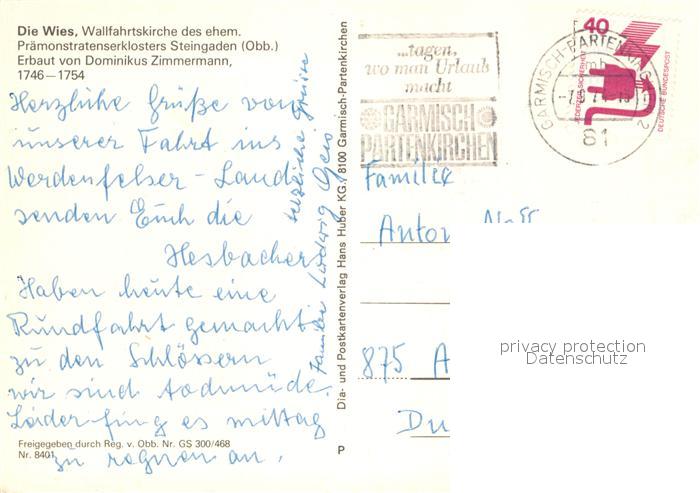 Die Wies, Wallfahrtskirche des ehem.
Prämonstratenserklosters Steingaden (Obb.)
Erbaut von Dominikus Zimmermann,
1746—1754
Herzliche Grüße von
unserer Fahrt ins
Werdenfelser-Land
senden Euch die
Hesbacher
Haben heute eine
Rundfahrt gemacht
zu den Schlössern
wir sind todmüde.
Leider fing es mittag
zu regnen an.
Freigegeben durch Reg. v. Obb. Nr. GS 300/468
Nr. 8401
herzliche Grüße
Familie Ludwig
Dia- und Postkartenverlag Hans Huber KG., 8100 Garmisch-Partenkirchen
P
...tagen,
wo man Urlaub
macht
GARMISCH
PARTENKIRCHEN
GARMISCH-PARTENKI
mb
81
2
40
JEDERZEIT SICHERHEIT
DEUTSCHE BUNDESPOST
Familie
Anton
875 A
Du
privacy protection
Datenschutz